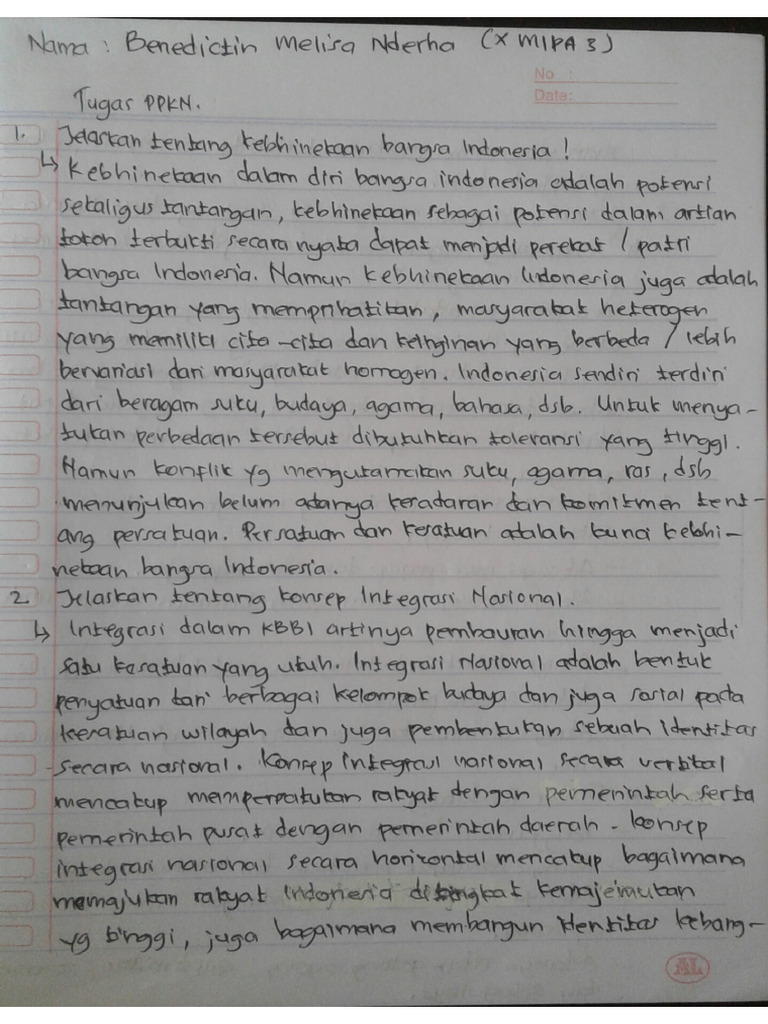 Nama : Benedictin Melisa Nderha (X MIPA 3)
No :
Date:
Tugas PPKN.
1. Jelaskan tentang kebhinekaan bangsa Indonesia !
↳ Kebhinekaan dalam diri bangsa indonesia adalah potensi
sekaligus tantangan, kebhinekaan sebagai potensi dalam artian
tokoh terbukti secara nyata dapat menjadi perekat / patri
bangsa Indonesia. Namun kebhinekaan Indonesia juga adalah
tantangan yang memprihatikan, masyarakat heterogen
yang memiliki cita-cita dan keinginan yang berbeda / lebih
bervariasi dari masyarakat homogen. Indonesia sendiri terdiri
dari beragam suku, budaya, agama, bahasa, dsb. Untuk menya-
tukan perbedaan tersebut dibutuhkan toleransi yang tinggi.
Namun konflik yg mengutamakan suku, agama, ras, dsb
menunjukan belum adanya kesadaran dan komitmen tent-
ang persatuan. Persatuan dan kesatuan adalah kunci kebhi-
nekaan bangsa Indonesia.
2. Jelaskan tentang konsep Integrasi Nasional.
↳ Integrasi dalam KBBI artinya pembauran hingga menjadi
satu kasatuan yang utuh. Integrasi Nasional adalah bentuk
penyatuan dari berbagai kelompok budaya dan juga sosial pada
kesatuan wilayah dan juga pembentukan sebuah identitas
secara nasional. Konsep integrasi nasional secara vertikal
mencakup mempersatukan rakyat dengan pemerintah serta
pemerintah pusat dengan pemerintah daerah. Konsep
integrasi nasional secara horizontal mencakup bagaimana
memajukan rakyat Indonesia ditingkat kemajemukan
yg tinggi, juga bagaimana membangun identitas kebang-
AL